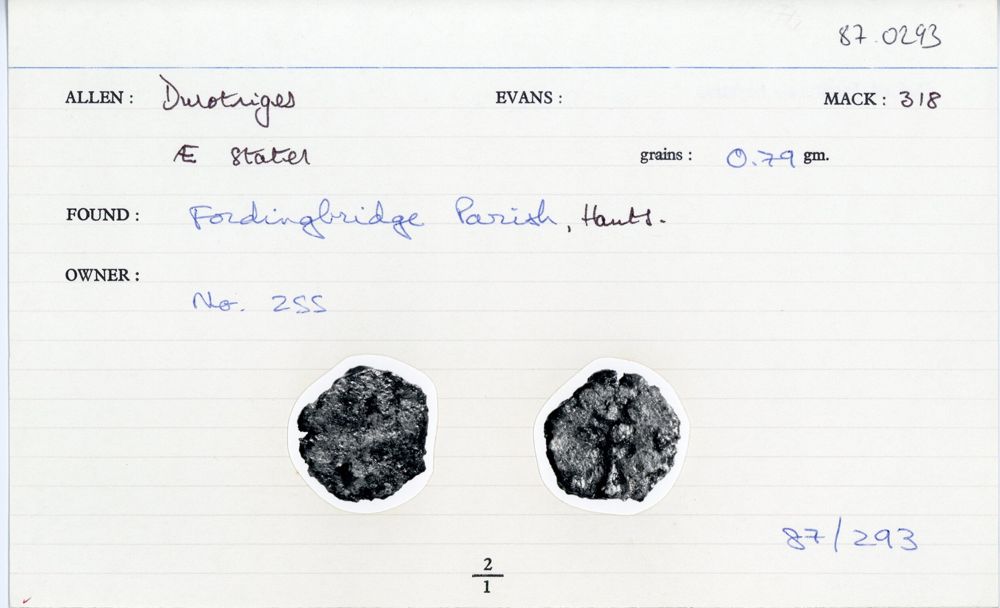 87.0293
ALLEN : Durotriges EVANS : MACK : 318
Æ Stater grains : 0.79 gm.
FOUND : Fordingbridge Parish, Hants.
OWNER :
No. 255
87/293
2
1